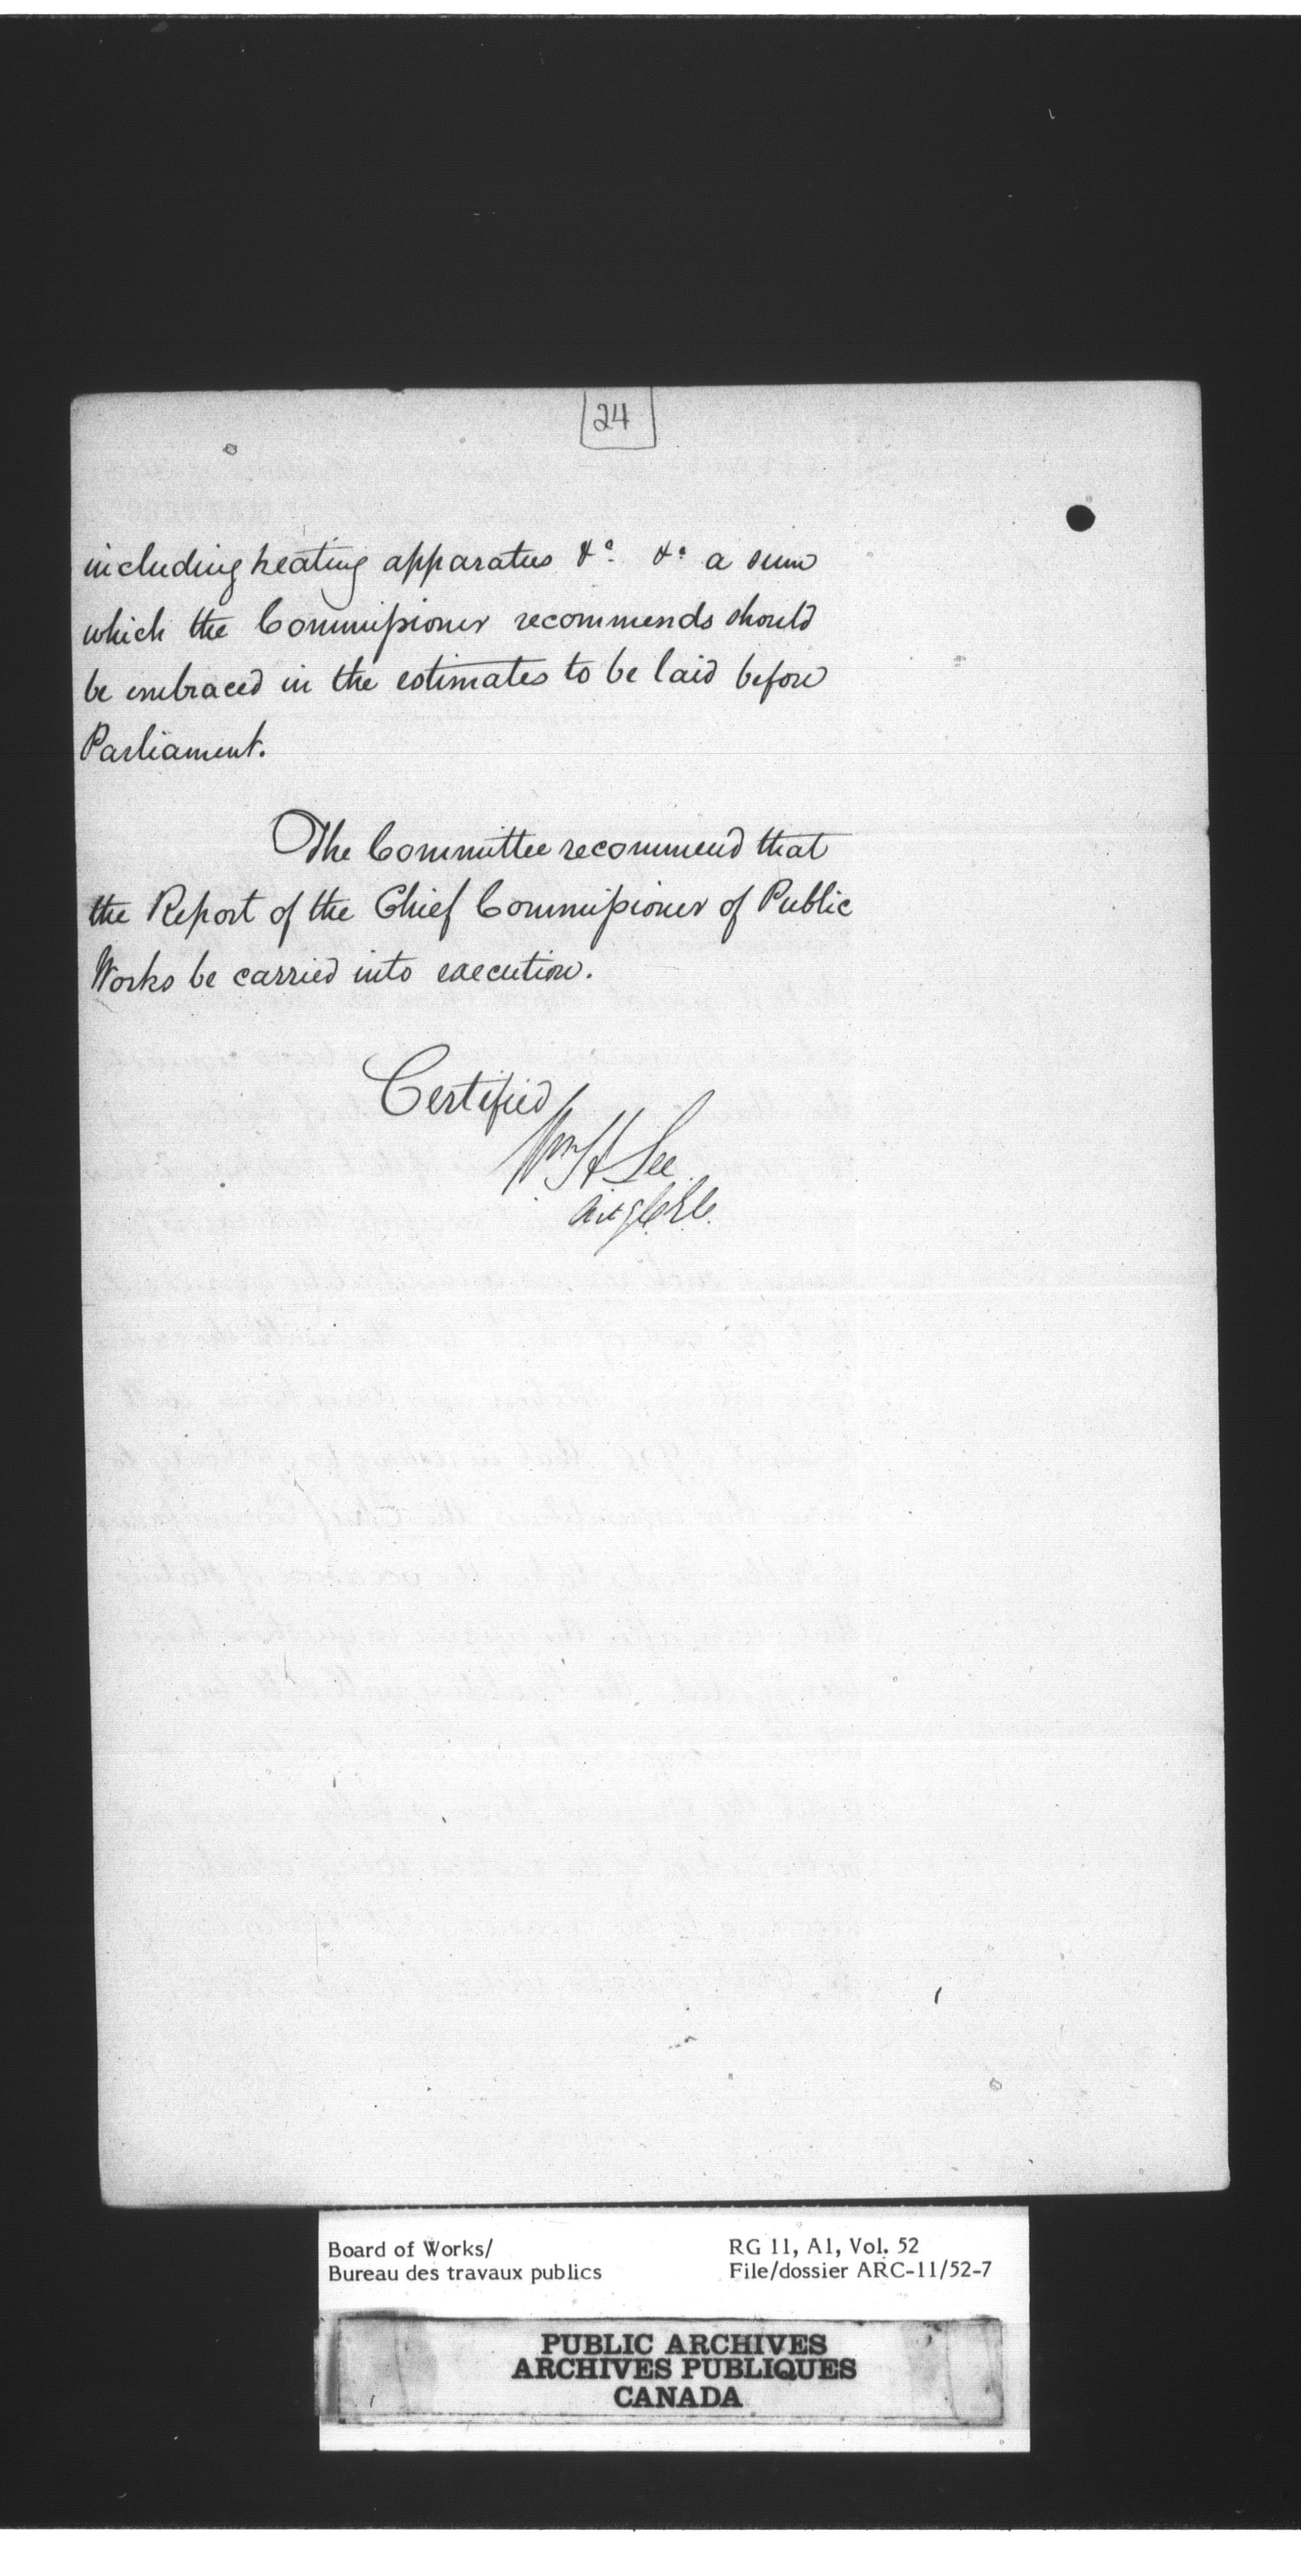 24
including heating apparatus &c. &c. a sum
which the Commissioner recommends should
be embraced in the estimates to be laid before
Parliament.
The Committee recommend that
the Report of the Chief Commissioner of Public
Works be carried into execution.
Certified
Wm H Lee
Board of Works/
Bureau des travaux publics
RG 11, A1, Vol. 52
File/dossier ARC-11/52-7
PUBLIC ARCHIVES
ARCHIVES PUBLIQUES
CANADA